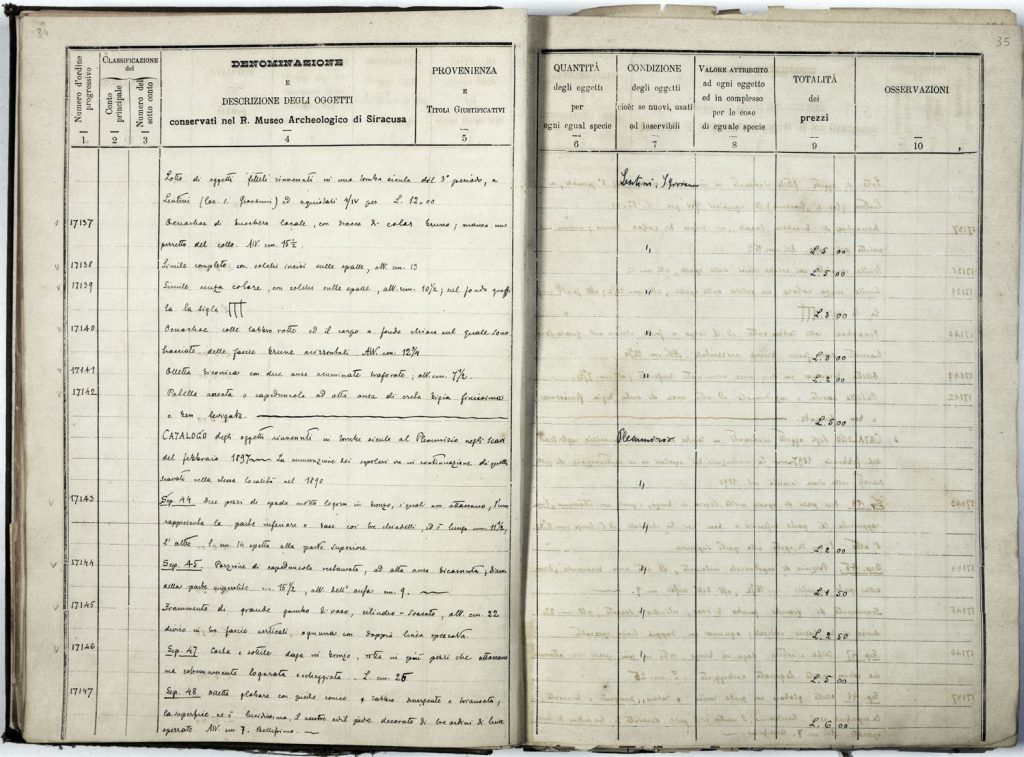 34
35
Numero d'ordine progressivo
1
CLASSIFICAZIONE
del
Conto principale
2
Numero del sotto conto
3
DENOMINAZIONE
E
DESCRIZIONE DEGLI OGGETTI
conservati nel R. Museo Archeologico di Siracusa
4
PROVENIENZA
E
TITOLI GIUSTIFICATIVI
5
QUANTITÀ
degli oggetti
per
ogni egual specie
6
CONDIZIONE
degli oggetti
cioè: se nuovi, usati
od inservibili
7
VALORE ATTRIBUITO
ad ogni oggetto
ed in complesso
per le cose
di eguale specie
8
TOTALITÀ
dei
prezzi
9
OSSERVAZIONI
10
Lotto di oggetti fittili rinvenuti in una tomba sicula del 3° periodo, a
Lentini, S Giovanni
Lentini (loc. S. Giovanni) ed acquistati IV per L. 12.00
17137 Oenochoe di bucchero locale, con tracce di color bruno; manca un
pezzetto del collo. Alt. cm. 15½
" L. 5 00
17138 Simile completo con solchi incisi sulle spalle, alt. cm. 13
" L. 5 00
17139 Simile senza colore, con solchi sulle spalle, alt. cm. 10½; sul fondo graffi
ta la sigla
" L. 3 00
17140 Oenochoe colle labbro rotte ed il corpo a fondo chiaro sul quale sono
tracciate delle fascie brune orizzontali Alt. cm. 12¾
" L. 3 00
17141 Olletta biconica con due anse acuminate traforate, alt. cm. 7½
" L. 2 00
17142 Patella ansata o capeduncola ad alta ansa di creta bigia finissima
e ben levigata.
L. 5.00
CATALOGO degli oggetti rinvenuti in tombe sicule al Plemmirio negli scavi
Plemmirio
del febbraio 1897 La numerazione dei sepolcri va in continuazione di quelli
scavati nella stessa località nel 1890
17143 Sep. 44 Due pezzi di spada molto logora in bronzo, i quali non attaccano, l'uno
rappresenta la parte inferiore o base coi tre chiodelli, ed è lungo cm. 11½,
l'altro l. cm. 14 spetta alla parte superiore
" L. 2 00
17144 Sep. 45 Porzione di capeduncola restaurata, ad alta ansa bicornuta; diam.
della parte superstite cm. 15½, alt. dell'ansa cm. 9.
" L. 1 50
17145 Frammento di grande gambo di vaso, cilindro-svasato, alt. cm. 22
diviso in tre fascie verticali, ognuna con doppia linea spezzata
" L. 2 50
17146 Sep. 47 Corta e sottile daga in bronzo, rotta in più pezzi che attaccano
ma estremamente logorata e scheggiata. L. cm. 25
" L. 5 00
17147 Sep. 48 Olletta globare con piede conico e labbro divergente e svasata,
la superficie ne è lucidissima, il ventre ed il piede decorato di tre ordini di linee
spezzate. Alt. cm 7. Bellissimo.
L. 6 00